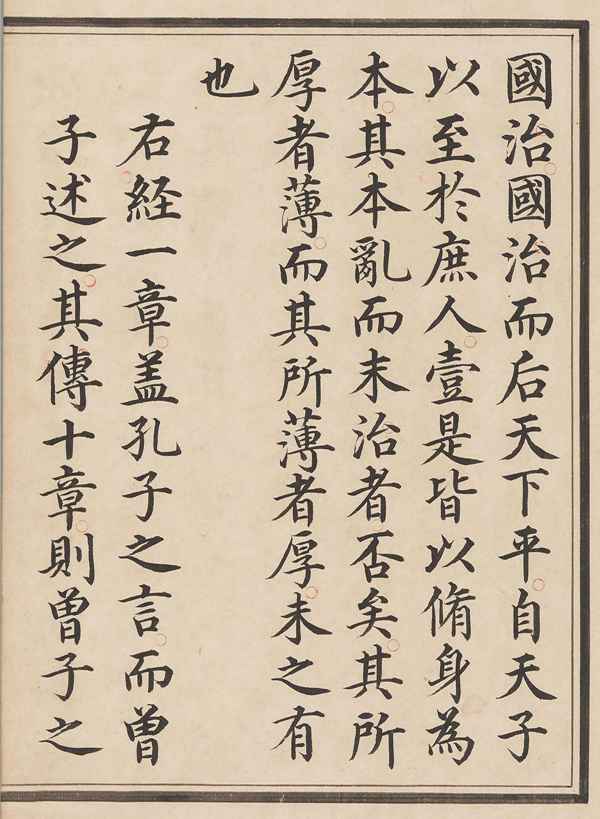 國治國治而后天下平自天子
以至於庶人壹是皆以脩身為
本其本亂而末治者否矣其所
厚者薄而其所薄者厚未之有
也
右経一章盖孔子之言而曾
子述之其傳十章則曾子之